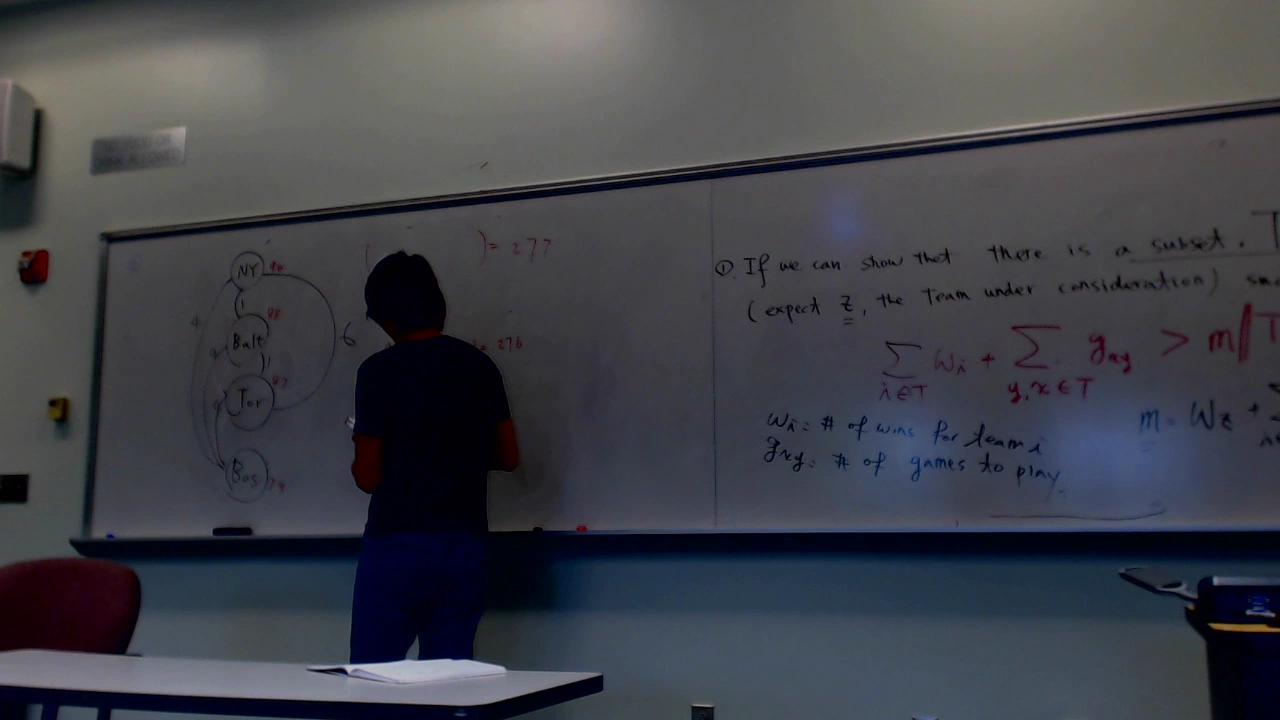 NY 90
1
4
Balt 88
6
1
Tor 87
Bos 79
( ) = 277
= 276
① If we can show that there is a subset. T
(expect z, the Team under consideration)
∑ i∈T wi + ∑ y,x∈T gxy > m|T
wi: # of wins for team i
gxy: # of games to play.
m = Wz +